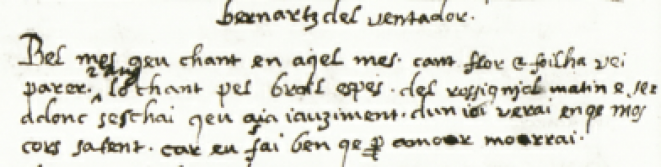 bernartz del ventador.
Bel mes qeu chant en aqel mes. cant flor e foilha vei
parer. ⁊ aug lo chant pels brols espes. del rossignol matin e ser
adonc seschai qeu aia iauziment. dun ioi verai en qe mos
cors satent. car eu sai ben qe ꝑ amor morrai.